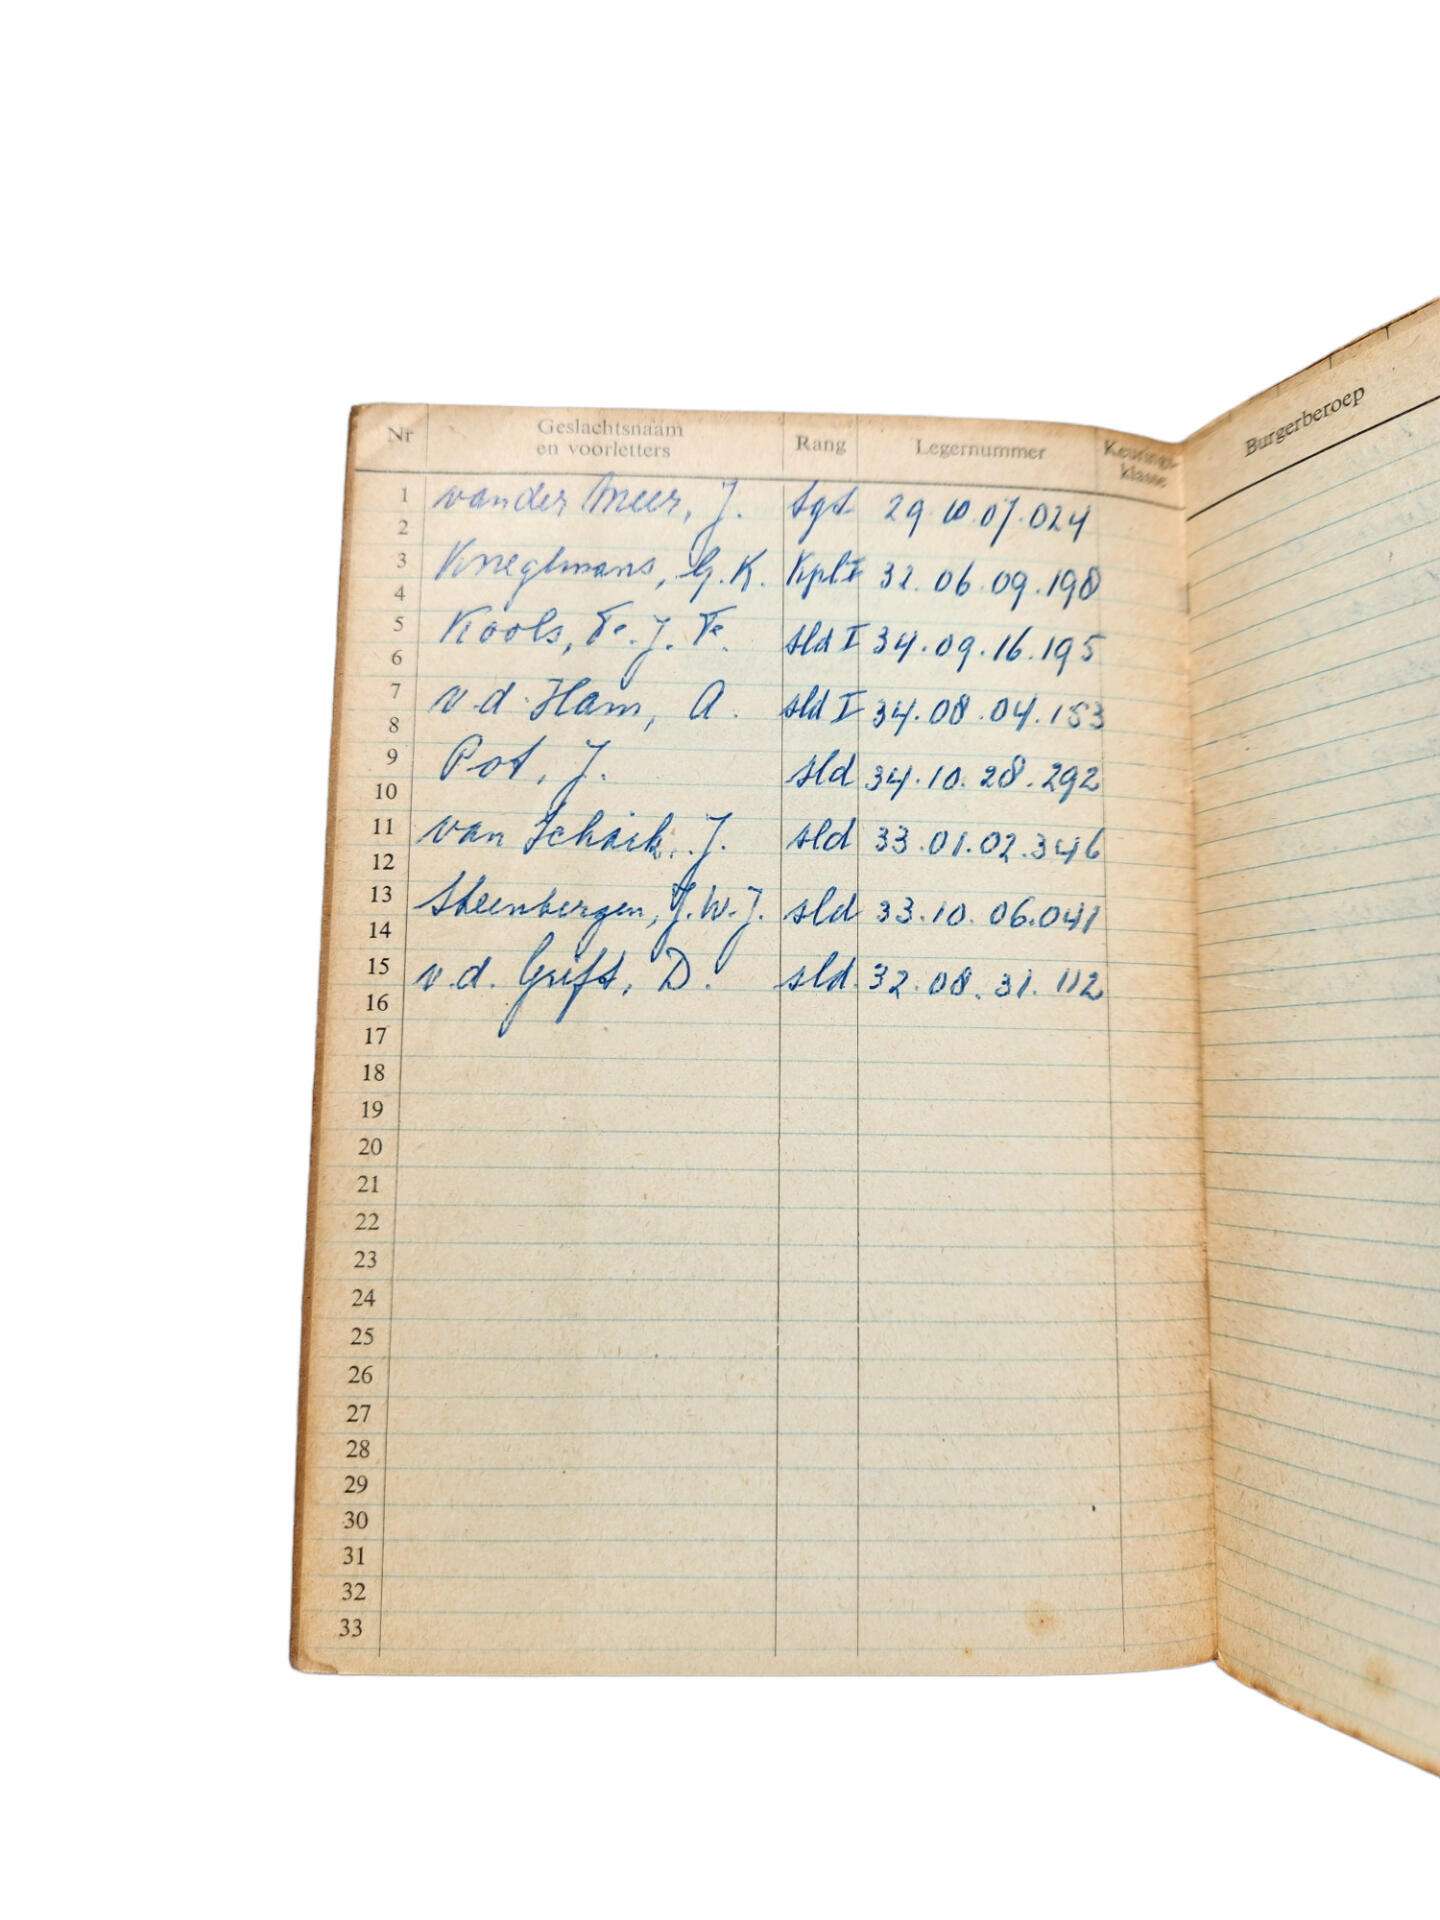 Nr Geslachtsnaam en voorletters Rang Legernummer Keurings-klasse Burgerberoep
1 van der Meer, J. Sgt 29.10.07.024
2
3 Kneglmans, G. K. Kpl I 32.06.09.198
4
5 Kools, F. J. F. sld I 34.09.16.195
6
7 v.d. Ham, A. sld I 34.08.04.153
8
9 Pot, J. sld 34.10.28.292
10
11 van Schaik, J. sld 33.01.02.346
12
13 Steenbergen, J.W.J. sld 33.10.06.041
14
15 v.d. Grift, D. sld. 32.08.31.112
16
17
18
19
20
21
22
23
24
25
26
27
28
29
30
31
32
33